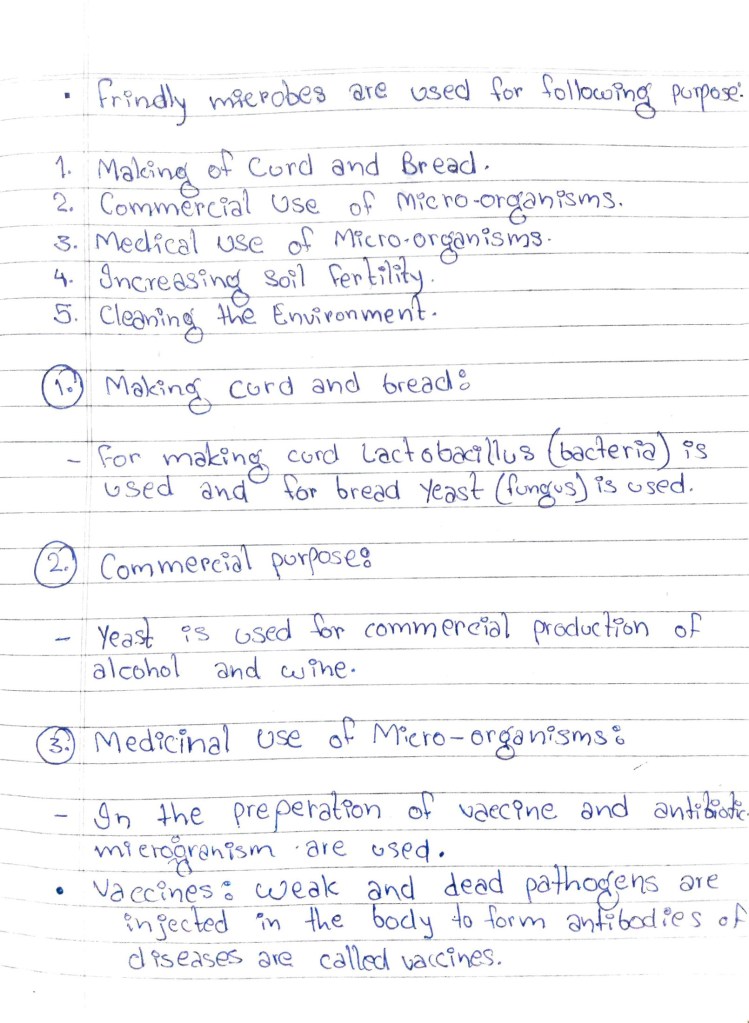 • Frindly microbes are used for following purpose:
1. Making of Curd and Bread.
2. Commercial Use of Micro-organisms.
3. Medical use of Micro-organisms.
4. Increasing soil fertility.
5. Cleaning the Environment.
1. Making curd and bread:
- For making curd Lactobacillus (bacteria) is
used and for bread Yeast (fungus) is used.
2. Commercial purpose:
- Yeast is used for commercial production of
alcohol and wine.
3. Medicinal use of Micro-organisms:
- In the preperation of vaccine and antibiotic
microgranism are used.
• Vaccines: weak and dead pathogens are
injected in the body to form antibodies of
diseases are called vaccines.